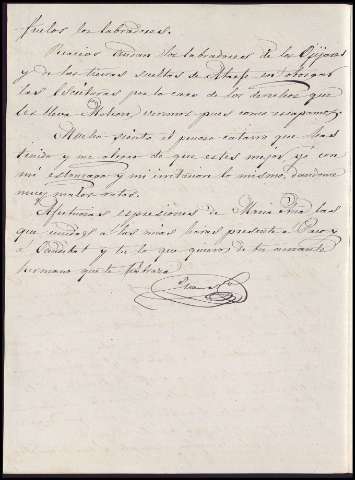 fuelos los labradores.
Reacios andan los labradores de los Ogijares
y de las tierras sueltas de Atarfe en otorgar
las Escrituras por lo caro de los derechos que
les lleva veremos pues como escapamos.
Mucho siento el picaro catarro que has
tenido y me alegro de que estes mejor, yo con
mi estomago y mi irritacion lo mismo, dandome
muy malos ratos.
Afectuosas espresiones de Maria las
que unidas a las mias haras presente a Paco y
a Candida y tu lo que quieras de tu amante
hermano que te